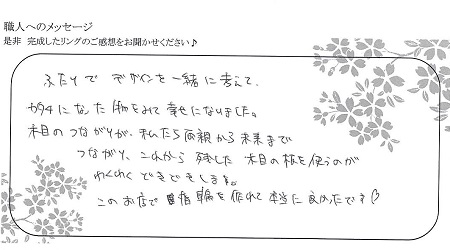 職人へのメッセージ
是非 完成したリングのご感想をお聞かせください♪
ふたりで デザインを一緒に考えて、
カタチになった物をみて幸せになりました。
木目のつながりが、私たち両親から未来まで
つながり、これから 残した 木目の板を使うのが
わくわく できできします。
このお店で 指輪を作れて本当に良かったです♡